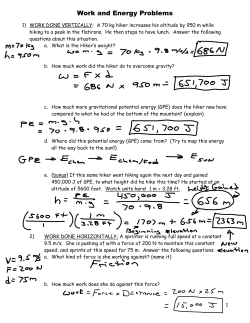 Work and Energy Problems
1) WORK DONE VERTICALLY: A 70 kg hiker increases his altitude by 950 m while
hiking to a peak in the flatirons. He then stops to have lunch. Answer the following
questions about this situation.
m=70 kg
h=950m
a. What is the Hiker's weight?
W = m·g = 70 kg · 9.8 m/s² = 686 N
b. How much work did the hiker do to overcome gravity?
W = F x d
= 686 N x 950 m = 651,700 J
c. How much more gravitational potential energy (GPE) does the hiker now have
compared to what he had at the beginning of the hike?
PE = m·g·h
= 70·9.8·950 = 651,700 J
d. Where did this potential energy (GPE) come from? (Try to map this energy
all the way back to the sun!!)
GPE → Echem → Echem/Food → Esun
e. (bonus) If this same hiker went hiking again the next day and gained
450,000 J of GPE, to what height did he hike this time? He started at an
altitude of 5600 feet. Watch units here! 1 m = 3.28 ft.
height gained
h = PE / m·g = 450,000 J / 70·9.8 = 656 m
(5600 ft / 1) (1 m / 3.28 ft) = 1707 m + 656 m = 2363 m
Beginning elevation
New elevation
2) WORK DONE HORIZONTALLY: A sprinter is running full speed at a constant
9.5 m/s. She is pushing with a force of 200 N to maintain this constant
speed, and sprints at this speed for 75 m. Answer the following questions.
V=9.5 m/s
F=200 N
d=75m
a. What kind of force is she working against? (name it)
Friction
b. How much work does she do against this force?
Work = Force x Distance = 200 N x 75 m
= 15,000 J
1